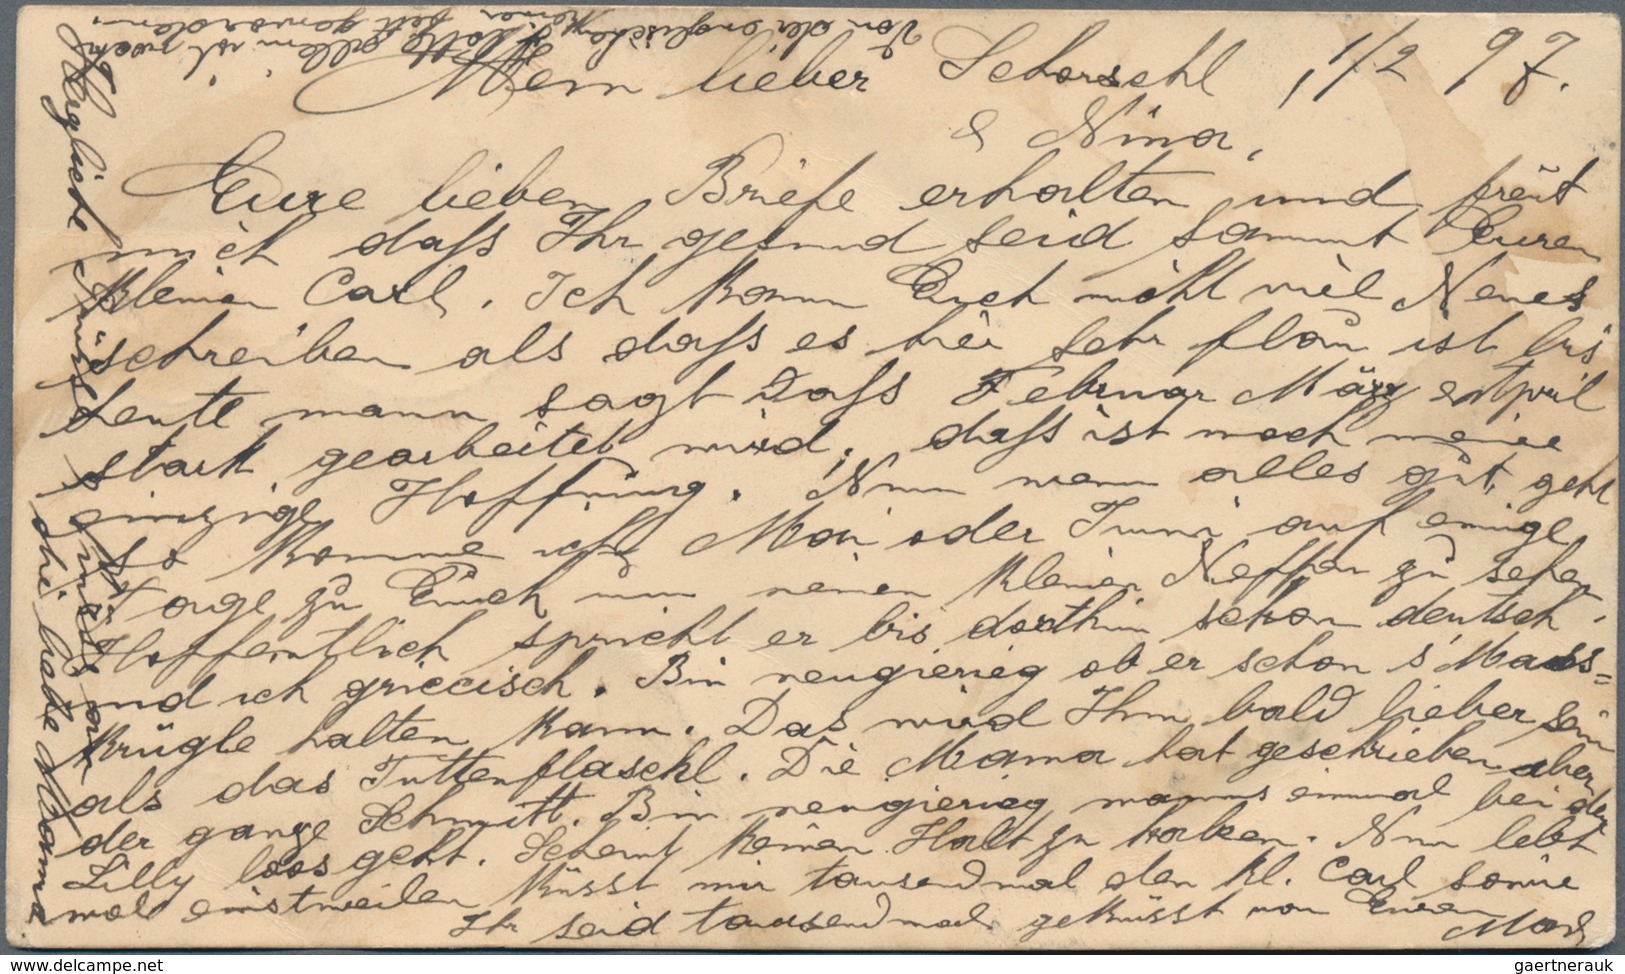 Mein lieber Schorschl, 1/2 97.
& Nina,
Eure lieben Briefe erhalten und freut
mich daß Ihr gesund seid sammt Euren
kleinen Carl. Ich kann Euch nicht viel Neues
schreiben als daß es hier sehr flau ist bis
heute mann sagt daß Februar März & April
stark gearbeitet wird, daß ist noch meine
einzige Hoffnung. Nun wenn alles gut geht
so komme ich Mai oder Juni auf einige
Tage zu Euch um meinen kleinen Neffen zu sehen.
Hoffentlich spricht er bis dorthin schon deutsch
und ich griecisch. Bin neugierieg ob er schon s'Mass=
krügle halten kann. Das wird Ihm bald lieber sein
als das Tuttenflaschl. Die Mama hat geschrieben aber
der ganze Schmitt. Bin neugierieg wanns einmal bei der
Lilly loos geht. Scheint keinen Halt zu haben. Nun lebt
wol einstweilen küsst mir tausendmal den kl. Carl sowie
Ihr seid tausendmal geküsst von Euren
Max
Herzliche Grüße & Küsse an
die liebe Mama
Von der englischen
Flotte allem ist zwar
keiner fett geworden
gaertnerauk
delcampe.net